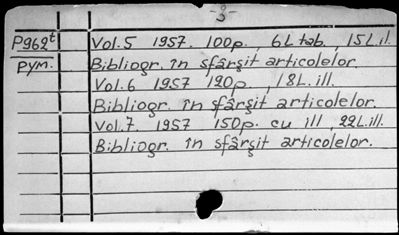 -3-
P962t Vol.5 1957. 100p., 6L tab., 15L.il.
рум. Bibliogr. în sfârşit articolelor.
Vol.6 1957 120p., 18L.ill.
Bibliogr. în sfârşit articolelor.
Vol.7. 1957 150p. cu ill, 22L.ill.
Bibliogr. în sfârşit articolelor.